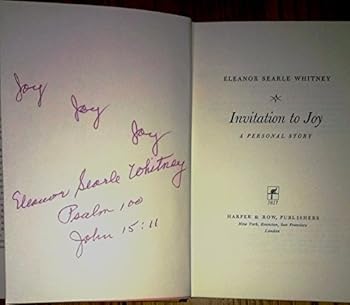 Joy
Joy
Joy
Eleanor Searle Whitney
Psalm 100
John 15:11
ELEANOR SEARLE WHITNEY
Invitation to Joy
A PERSONAL STORY
1817
HARPER & ROW, PUBLISHERS
New York, Evanston, San Francisco
London